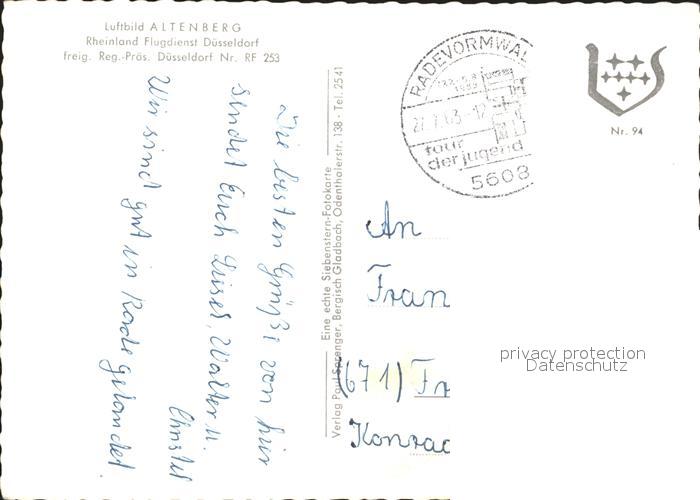 Luftbild ALTENBERG
Rheinland Flugdienst Düsseldorf
freig. Reg.-Präs. Düsseldorf Nr. RF 253
Die besten Grüße von hier
sendet Euch Liesel, Walter u.
Christel
Wir sind gut in Rade gelandet.
Eine echte Siebenstern-Fotokarte
Verlag Paul Sprenger, Bergisch Gladbach, Odenthalerstr. 138 - Tel. 2541
RADEVORMWAL
27.7.63-12
tour
der jugend
5608
Nr. 94
An
Fran
(671) Fr
Konrad
privacy protection
Datenschutz